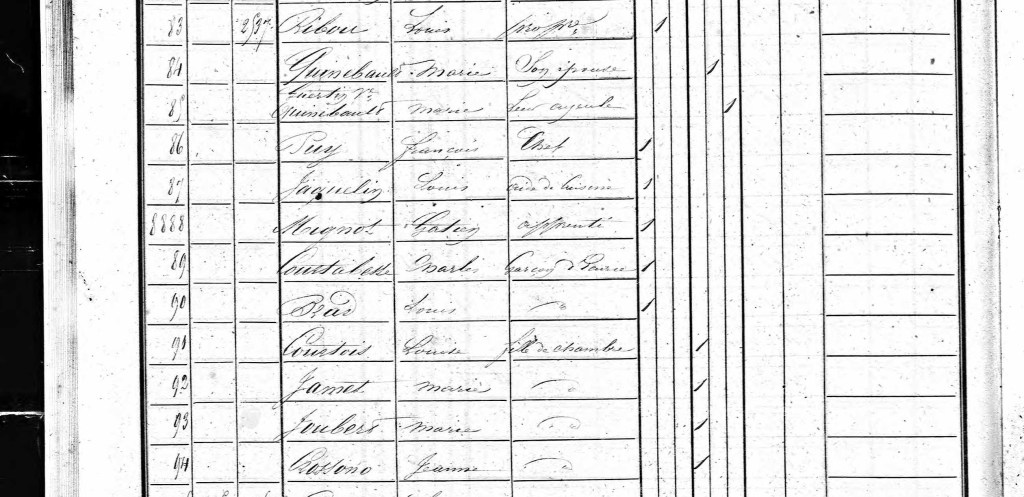 83 Ribou Louis propre 1
84 Guinebault Marie Son épouse 1
85 Guertin Ve Guinebault Marie Leur ayeule 1
86 Puy François Chef 1
87 Jaquelin Louis aide de cuisine 1
8888 Mignot Gatien apprenti 1
89 Charles Garçon d'Ecurie 1
90 Louis 1
91 Courtois Louise fille de chambre 1
92 Jamet Marie 1
93 Joubert Marie 1
94 Jeanne 1